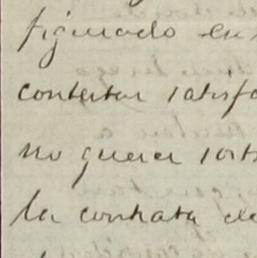 figurado en
contestar satisfa
no querer sost
la contrata de